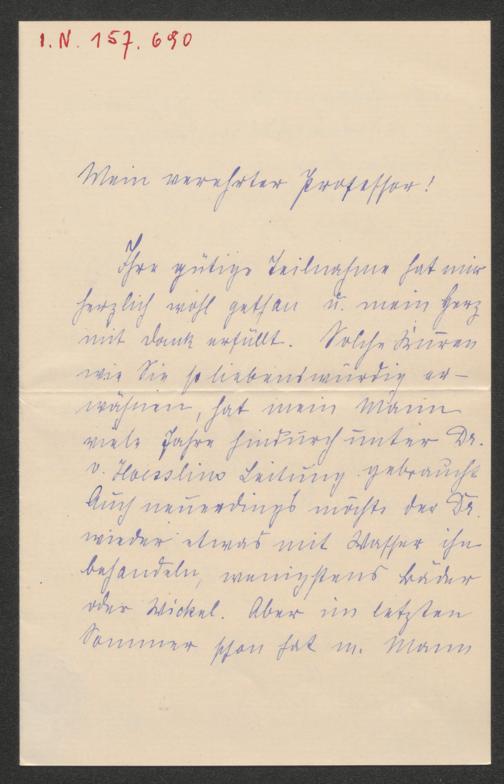 I.N. 157.690
Mein verehrter Professor!
Ihre gütige Teilnahme hat mir
herzlich wohl gethan u. mein Herz
mit Dank erfüllt. Solche Kuren
wie Sie so liebenswürdig er-
wähnen, hat mein Mann
viele Jahre hindurch unter Dr.
v. Hoesslins Leitung gebraucht
Auch neuerdings möchte der Dr.
wieder etwas mit Wasser ihn
behandeln, wenigstens Bäder
oder Wickel. Aber im letzten
Sommer schon hat m. Mann